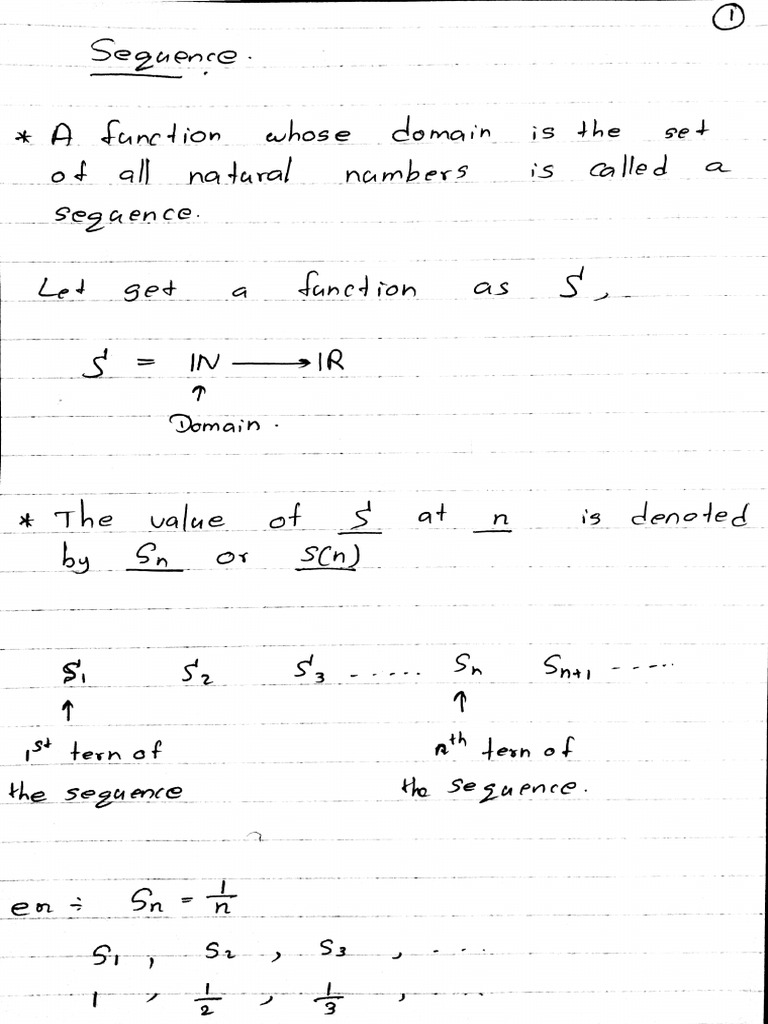 ①
Sequence.
* A function whose domain is the set
of all natural numbers is called a
sequence.
Let get a function as S,
S = IN ⟶ IR
↑
Domain.
* The value of S at n is denoted
by Sn or S(n)
S₁ S₂ S₃ ..... Sn Sn+1 .....
↑ ↑
1st tern of nth tern of
the sequence the sequence.
ex ÷ Sn = 1/n
S₁ , S₂ , S₃ , ....
1 , 1/2 , 1/3 , ....